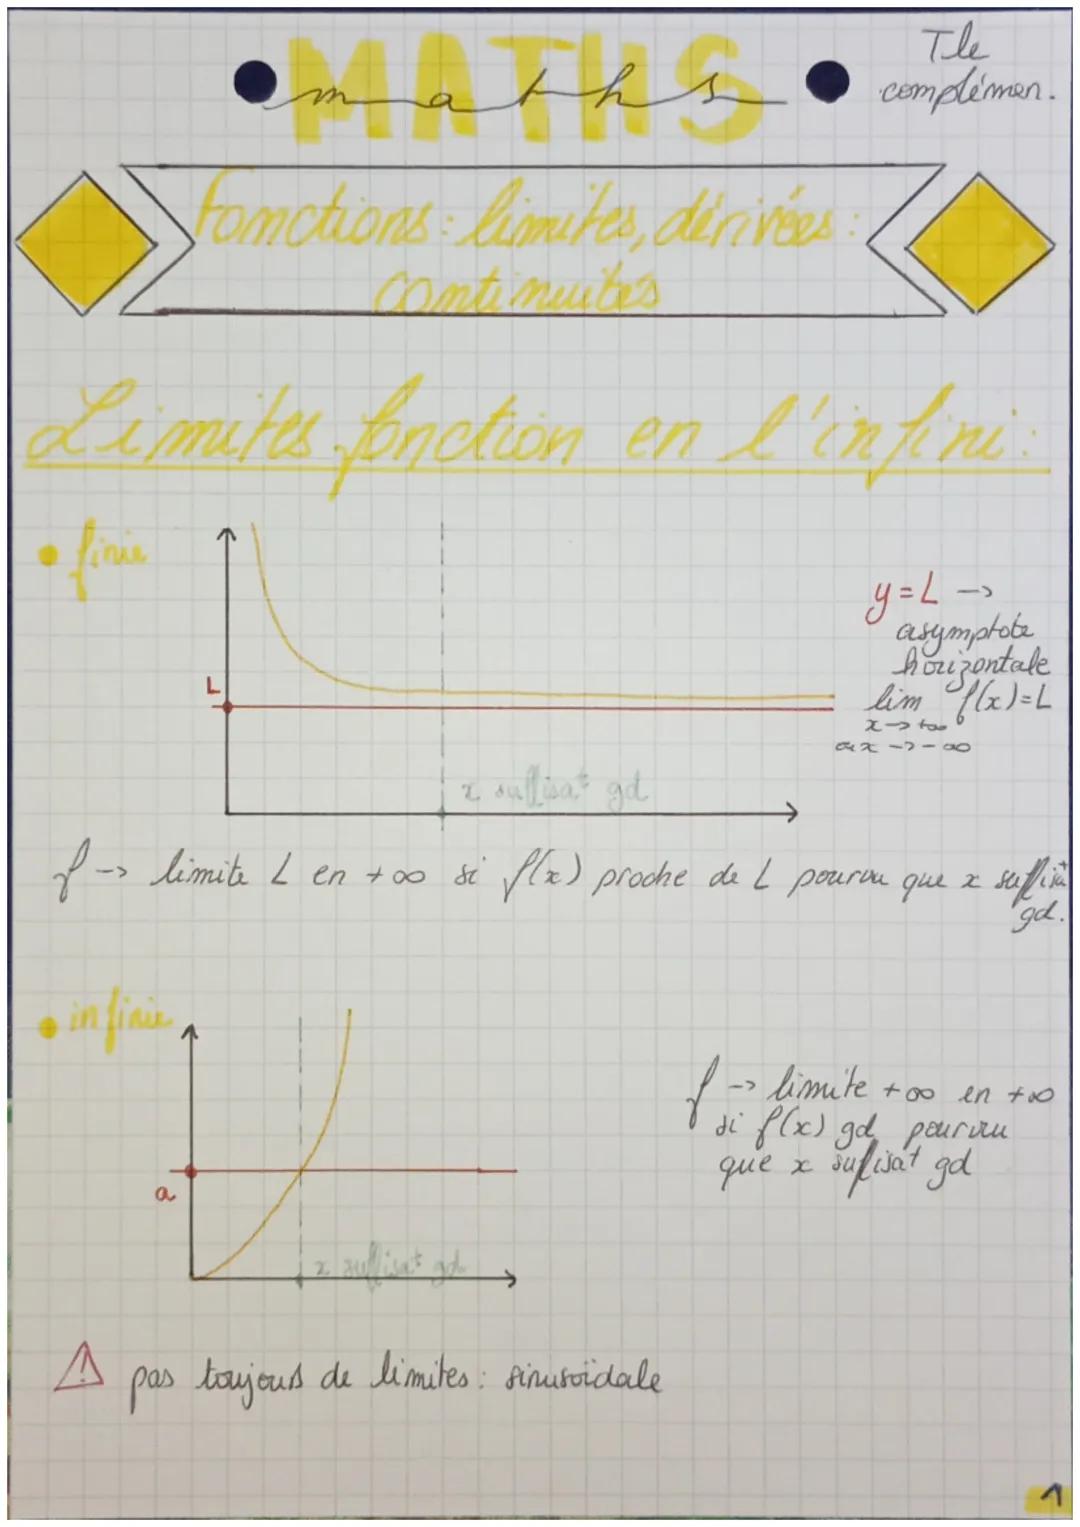 MATHS
maths
Tle
complémen.
Fonctions : limites, dérivées :
continuités
Limites fonction en l'infini :
• finie
y = L ->
asymptote
horizontale
lim f(x) = L
x -> +∞
ou x -> -∞
L
x suffisat gd
f -> limite L en +∞ si f(x) proche de L pourvu que x suffisat
gd.
• infinie
f -> limite +∞ en +∞
si f(x) gd pourvu
que x sufisat gd
a
x suffisat gd
⚠ pas toujours de limites : sinusoïdale
1